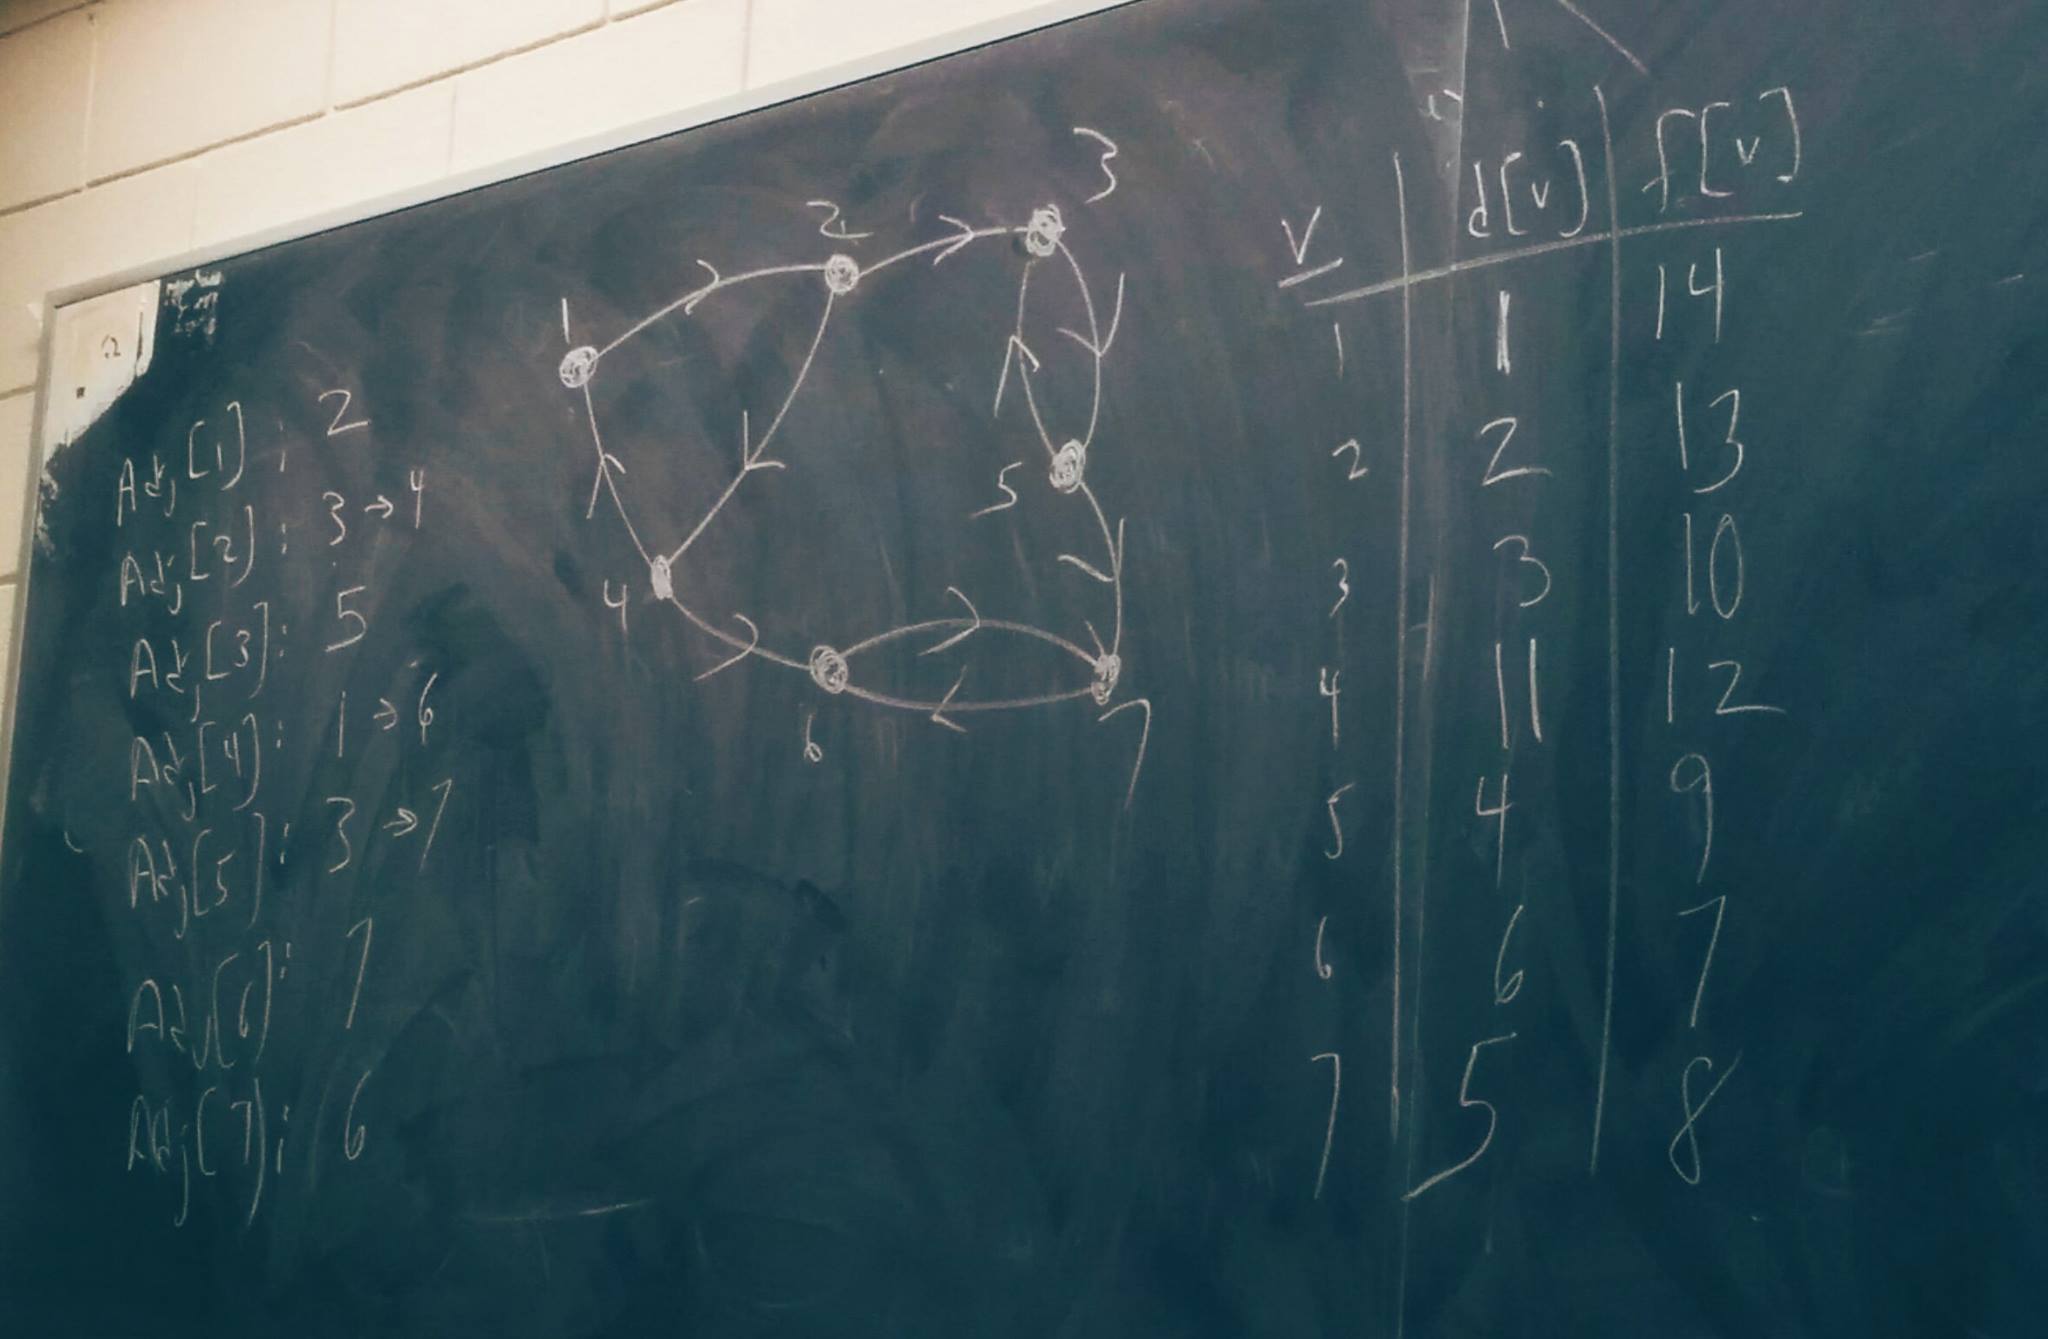 Adj[1]: 2
Adj[2]: 3→4
Adj[3]: 5
Adj[4]: 1→6
Adj[5]: 3→7
Adj[6]: 7
Adj[7]: 6
1
2
3
4
5
6
7
v d[v] f[v]
1 1 14
2 2 13
3 3 10
4 11 12
5 4 9
6 6 7
7 5 8